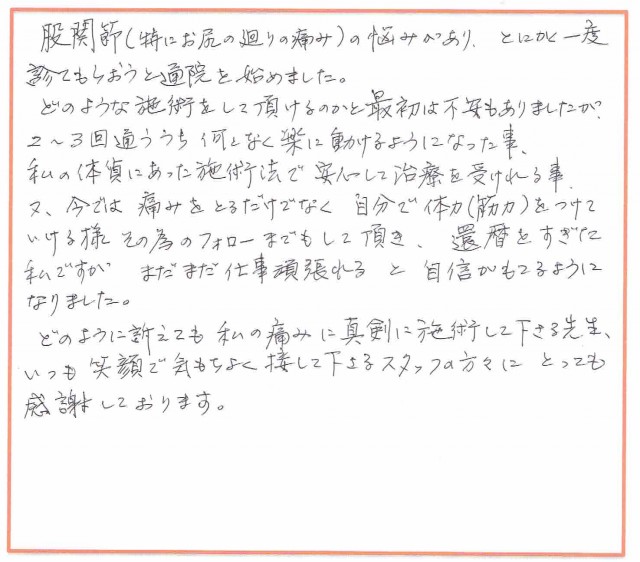 股関節(特にお尻の廻りの痛み)の悩みがあり、とにかく一度
診てもらおうと通院を始めました。
どのような施術をして頂けるのかと最初は不安もありましたが、
2～3回通ううち何となく楽に動けるようになった事、
私の体質にあった施術法で安心して治療を受けれる事、
又、今では痛みをとるだけでなく自分で体力(筋力)をつけて
いける様その為のフォローまでもして頂き、還暦をすぎた
私ですがまだまだ仕事頑張れると自信がもてるように
なりました。
どのように訴えても私の痛みに真剣に施術して下さる先生、
いつも笑顔で気もちよく接して下さるスタッフの方々にとっても
感謝しております。